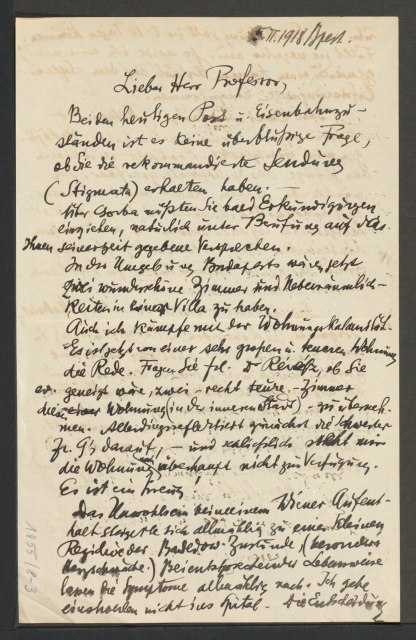 II. 1918 / Bpest.
Lieber Herr Professor,
Bei den heutigen Post u. Eisenbahnzu-
ständen ist es keine überflüssige Frage,
ob Sie die rekommandierte Sendung
(Stigmata) erhalten haben.
müssten Sie bald Erkundigungen
einziehen, natürlich unter Berufung auf das
Ihnen seinerzeit gegebene Versprechen.
In der Umgebung Budapests wären jetzt
zwei wunderschöne Zimmer und Nebenräumlich-
keiten in einer Villa zu haben.
Auch ich kämpfe mit der Wohnungskalamität.
Es ist jetzt von einer sehr grossen u. teueren Wohnung
die Rede. Fragen die frl. ob Sie
ev. geneigt wäre, zwei - recht teure - Zimmer
dieser Wohnung in der inneren Stadt) - zu überneh-
men. Allerdings reflektiert zunächst die Schwester
Fr. G's darauf, - und schliesslich steht mir
die Wohnung überhaupt nicht zur Verfügung.
Es ist ein
Das Unwohlsein bei unserem Wiener Aufent-
halt steigerte sich allmählig zu einer kleinen
Regidive der Basedow-Zustände (besonders
Herzschwäche.) Bei entsprechender Lebensweise
lassen die Symptome allmählig nach. Ich gehe
einstweilen nicht ins Spital. Die Entscheidung
1055/8-3